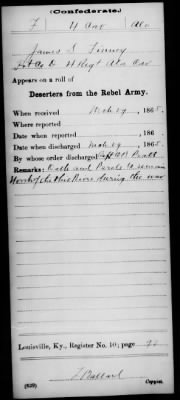 (Confederate.)
F 4 Cav Ala
James S. Tinney
Pvt Co D 4 Regt Ala Cav
Appears on a roll of
Deserters from the Rebel Army.
When received Mch 29, 1865.
Where reported
Date when reported , 186
Date when discharged Mch 29, 1865.
By whose order discharged Capt Pratt
Remarks: Oath and Parole to remain
North of the Ohio River during the war
Louisville, Ky., Register No. 10; page
(639) Copyist.